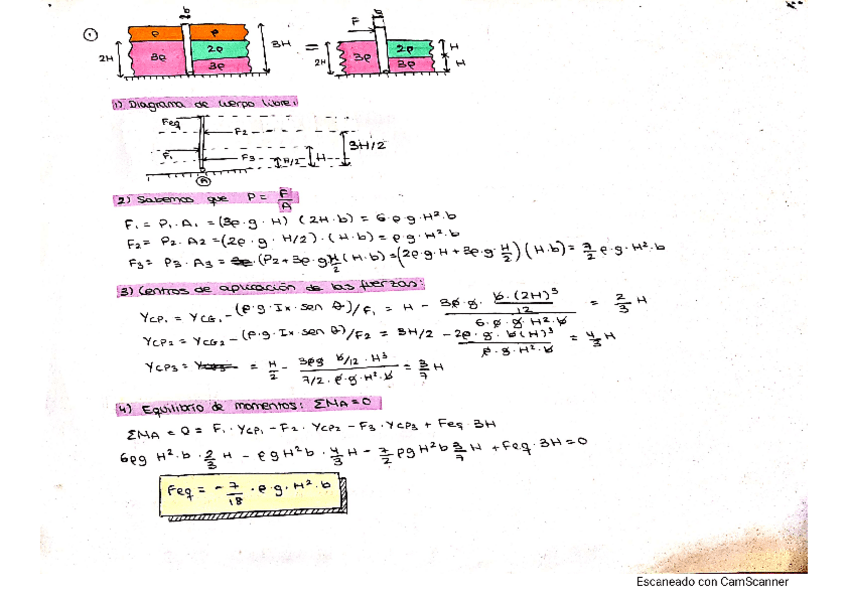 ① b
ρ ρ
2H 3ρ 2ρ 3ρ 3H
=
F b
2H 3ρ 2ρ 3ρ H H
1) Diagrama de cuerpo libre:
Feq
F2
F1 F3 H/2 H 3H/2
A
2) Sabemos que P = F/A
F1 = P1 · A1 = (3ρ · g · H) (2H · b) = 6 · ρ · g · H² · b
F2 = P2 · A2 = (2ρ · g · H/2) · (H · b) = ρ · g · H² · b
F3 = P3 · A3 = (P2 + 3ρ · g H/2 (H · b) = (2ρ · g · H + 3ρ · g · H/2) (H · b) = 7/2 ρ · g · H² · b
3) Centros de aplicación de las fuerzas:
YCP1 = YCG1 - (ρ · g · Ix · sen θ)/F1 = H - (3ρ · g · b · (2H)³/12)/(6 · ρ · g · H² · b) = 2/3 H
YCP2 = YCG2 - (ρ · g · Ix · sen θ)/F2 = 3H/2 - (2ρ · g · b(H)³)/(ρ · g · H² · b) = 4/3 H
YCP3 = H/2 - (3ρg b/12 · H³)/(7/2 · ρ · g · H² · b) = 3/7 H
4) Equilibrio de momentos: ΣMA = 0
ΣMA = 0 = F1 · YCP1 - F2 · YCP2 - F3 · YCP3 + Feq · 3H
6ρg H² · b · 2/3 H - ρgH²b · 4/3 H - 7/2 ρgH²b 3/7 H + Feq · 3H = 0
Feq = - 7/18 · ρ · g · H² · b
Escaneado con CamScanner